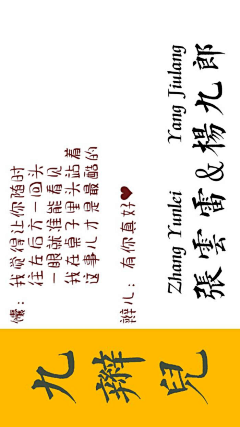 九
辮
兒
馕：我觉得让你随时
往左后方一回头
一眼就准能看见
我在桌子里头站着
这事儿才是最酷的
辫儿：有你真好♥
Zhang Yunlei Yang Jiulang
張雲雷&楊九郎